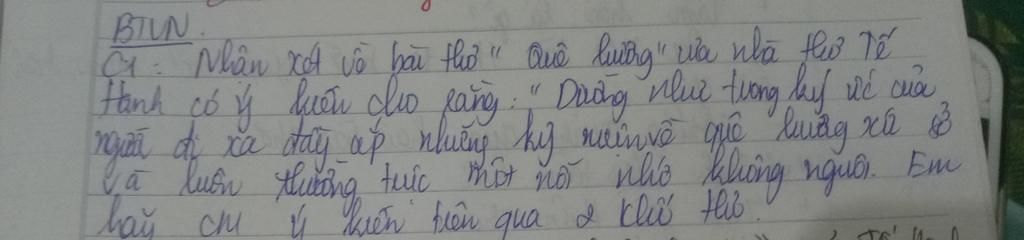 BTVN
C1: Nhận xét về bài thơ "Quê hương" của nhà thơ Tế
Hanh có ý kiến cho rằng: "Dường như trong ký ức của
người đi xa đầy ắp những kỷ niệm về quê hương xứ sở
và luôn thường trực một nỗi nhớ không nguôi. Em
hãy cm ý kiến trên qua 2 khổ thơ.